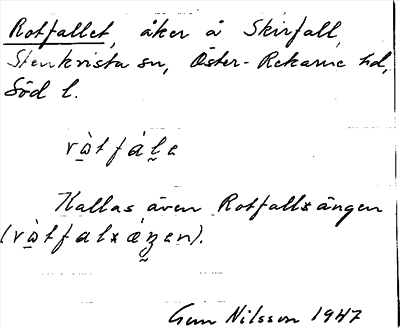 Rotfallet, åker å Skirfall,
Stenkvista sn, Öster-Rekarne hd,
Söd l.
rὼtfále
Kallas även Rotfallsängen
(rὼtfalsáŋen).
Gun Nilsson 1947